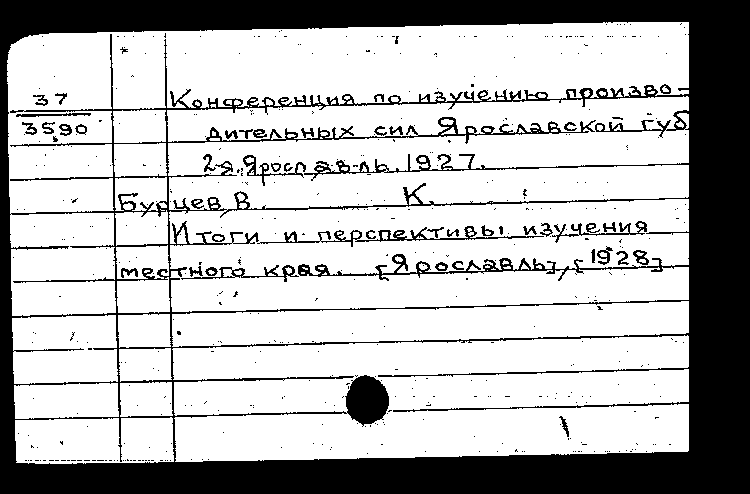 37
3590
Конференция по изучению произво-
дительных сил Ярославской губ
2-я. Ярославль. 1927.
Бурцев, В. К.
Итоги и перспективы изучения
местного края. [Ярославль], [1928]